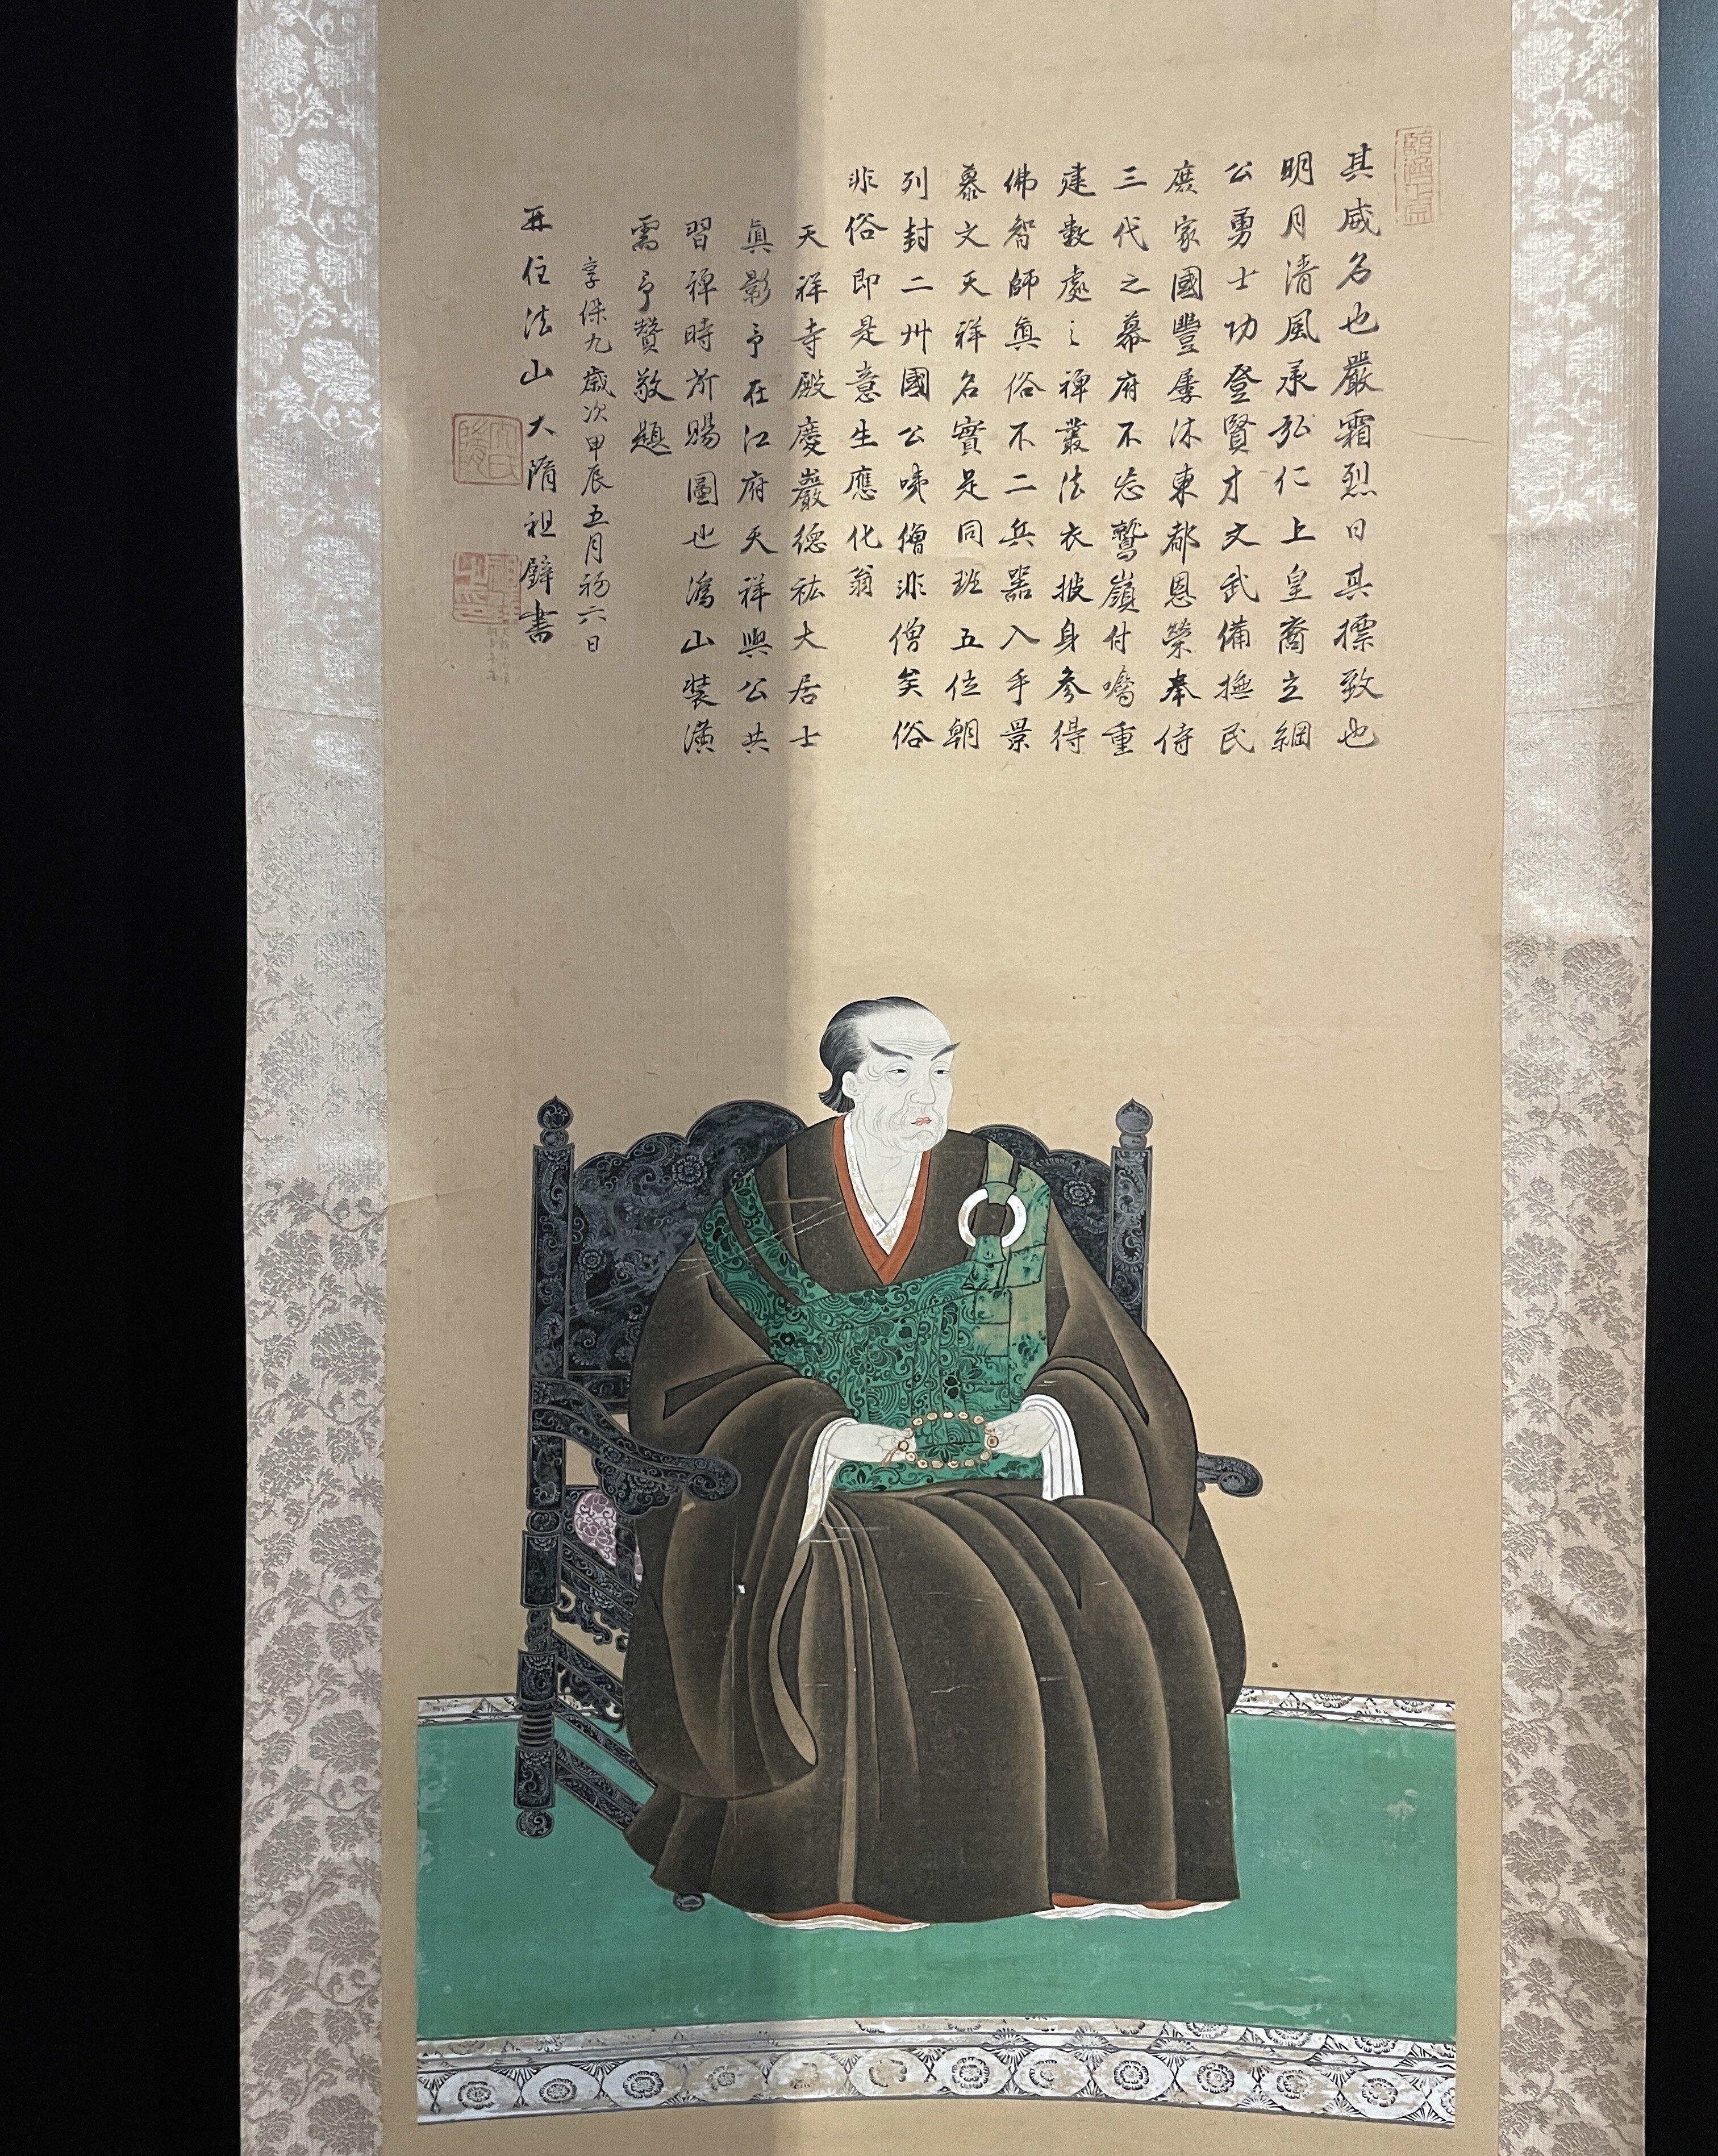 其威名也嚴霜烈日其標致也
明月清風承弘仁上皇裔立綱
公勇士功登賢才文武備撫民
庶家國豐屢沐東都恩榮奉侍
三代之幕府不忘鷲嶺付囑重
建數處之禅叢法衣披身参得
佛智師眞俗不二兵器入手景
慕文天祥名實是同班五位朝
列封二州國公嘆僧非僧矣俗
非俗即是意生應化翁
天祥寺殿慶巖德紘大居士
眞影予在江府天祥與公共
習禅時所賜圖也潙山装潢
需予贊敬題
享保九歳次甲辰五月初六日
再住法山大隋祖璧書